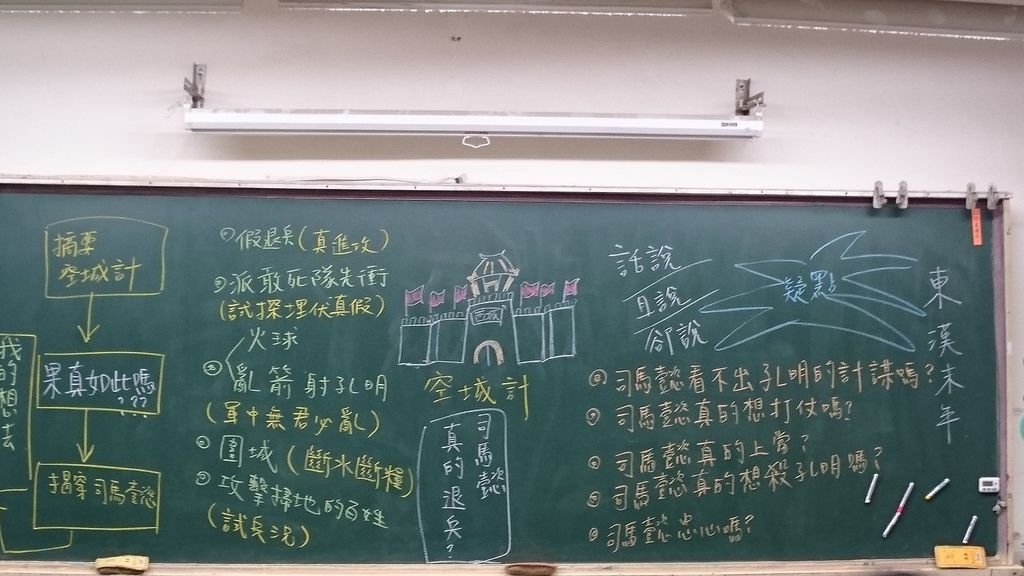 摘要
空城計
果真如此嗎
???
揭穿司馬懿
我的想法
①假退兵(真進攻)
②派敢死隊先衝
(試探埋伏真假)
火球
③亂箭射孔明
(軍中無君必亂)
④圍城(斷水斷糧)
⑤攻擊掃地的百姓
(試兵況)
西城
空城計
司馬懿
真的退兵?
話說
且說
卻說
疑點
①司馬懿看不出孔明的計謀嗎?
②司馬懿真的想打仗嗎?
③司馬懿真的上當?
④司馬懿真的想殺孔明嗎?
⑤司馬懿忠心嗎?
東漢末年